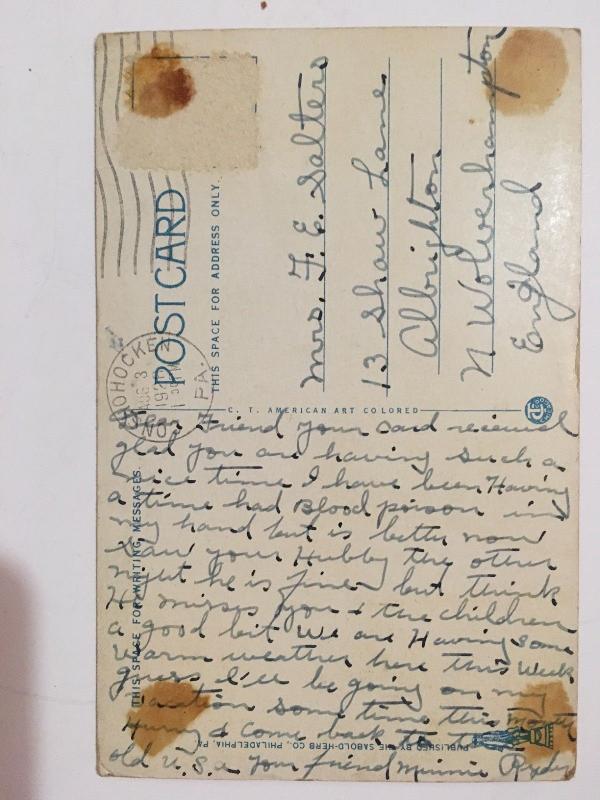 POST CARD
THIS SPACE FOR ADDRESS ONLY.
CONSHOHOCKEN PA.
AUG 3
Mrs. F. E. Salters
13 Shaw Lane
Albrighton
N Wolverhampton
England
C. T. AMERICAN ART COLORED
THIS SPACE FOR WRITING MESSAGES.
Dear Friend your card received
glad you are having such a
nice time I have been Having
a time had Blood poison in
my hand but is better now
Saw your Hubby the other
night he is fine but think
He misses you & the children
a good bit We are Having some
warm weather here this Week
guess I'll be going on my
vacation some time this month
Hurry & come back to the
old U.S.a your friend Minnie
PUBLISHED BY THE SABOLD-HERB CO., PHILADELPHIA, PA.